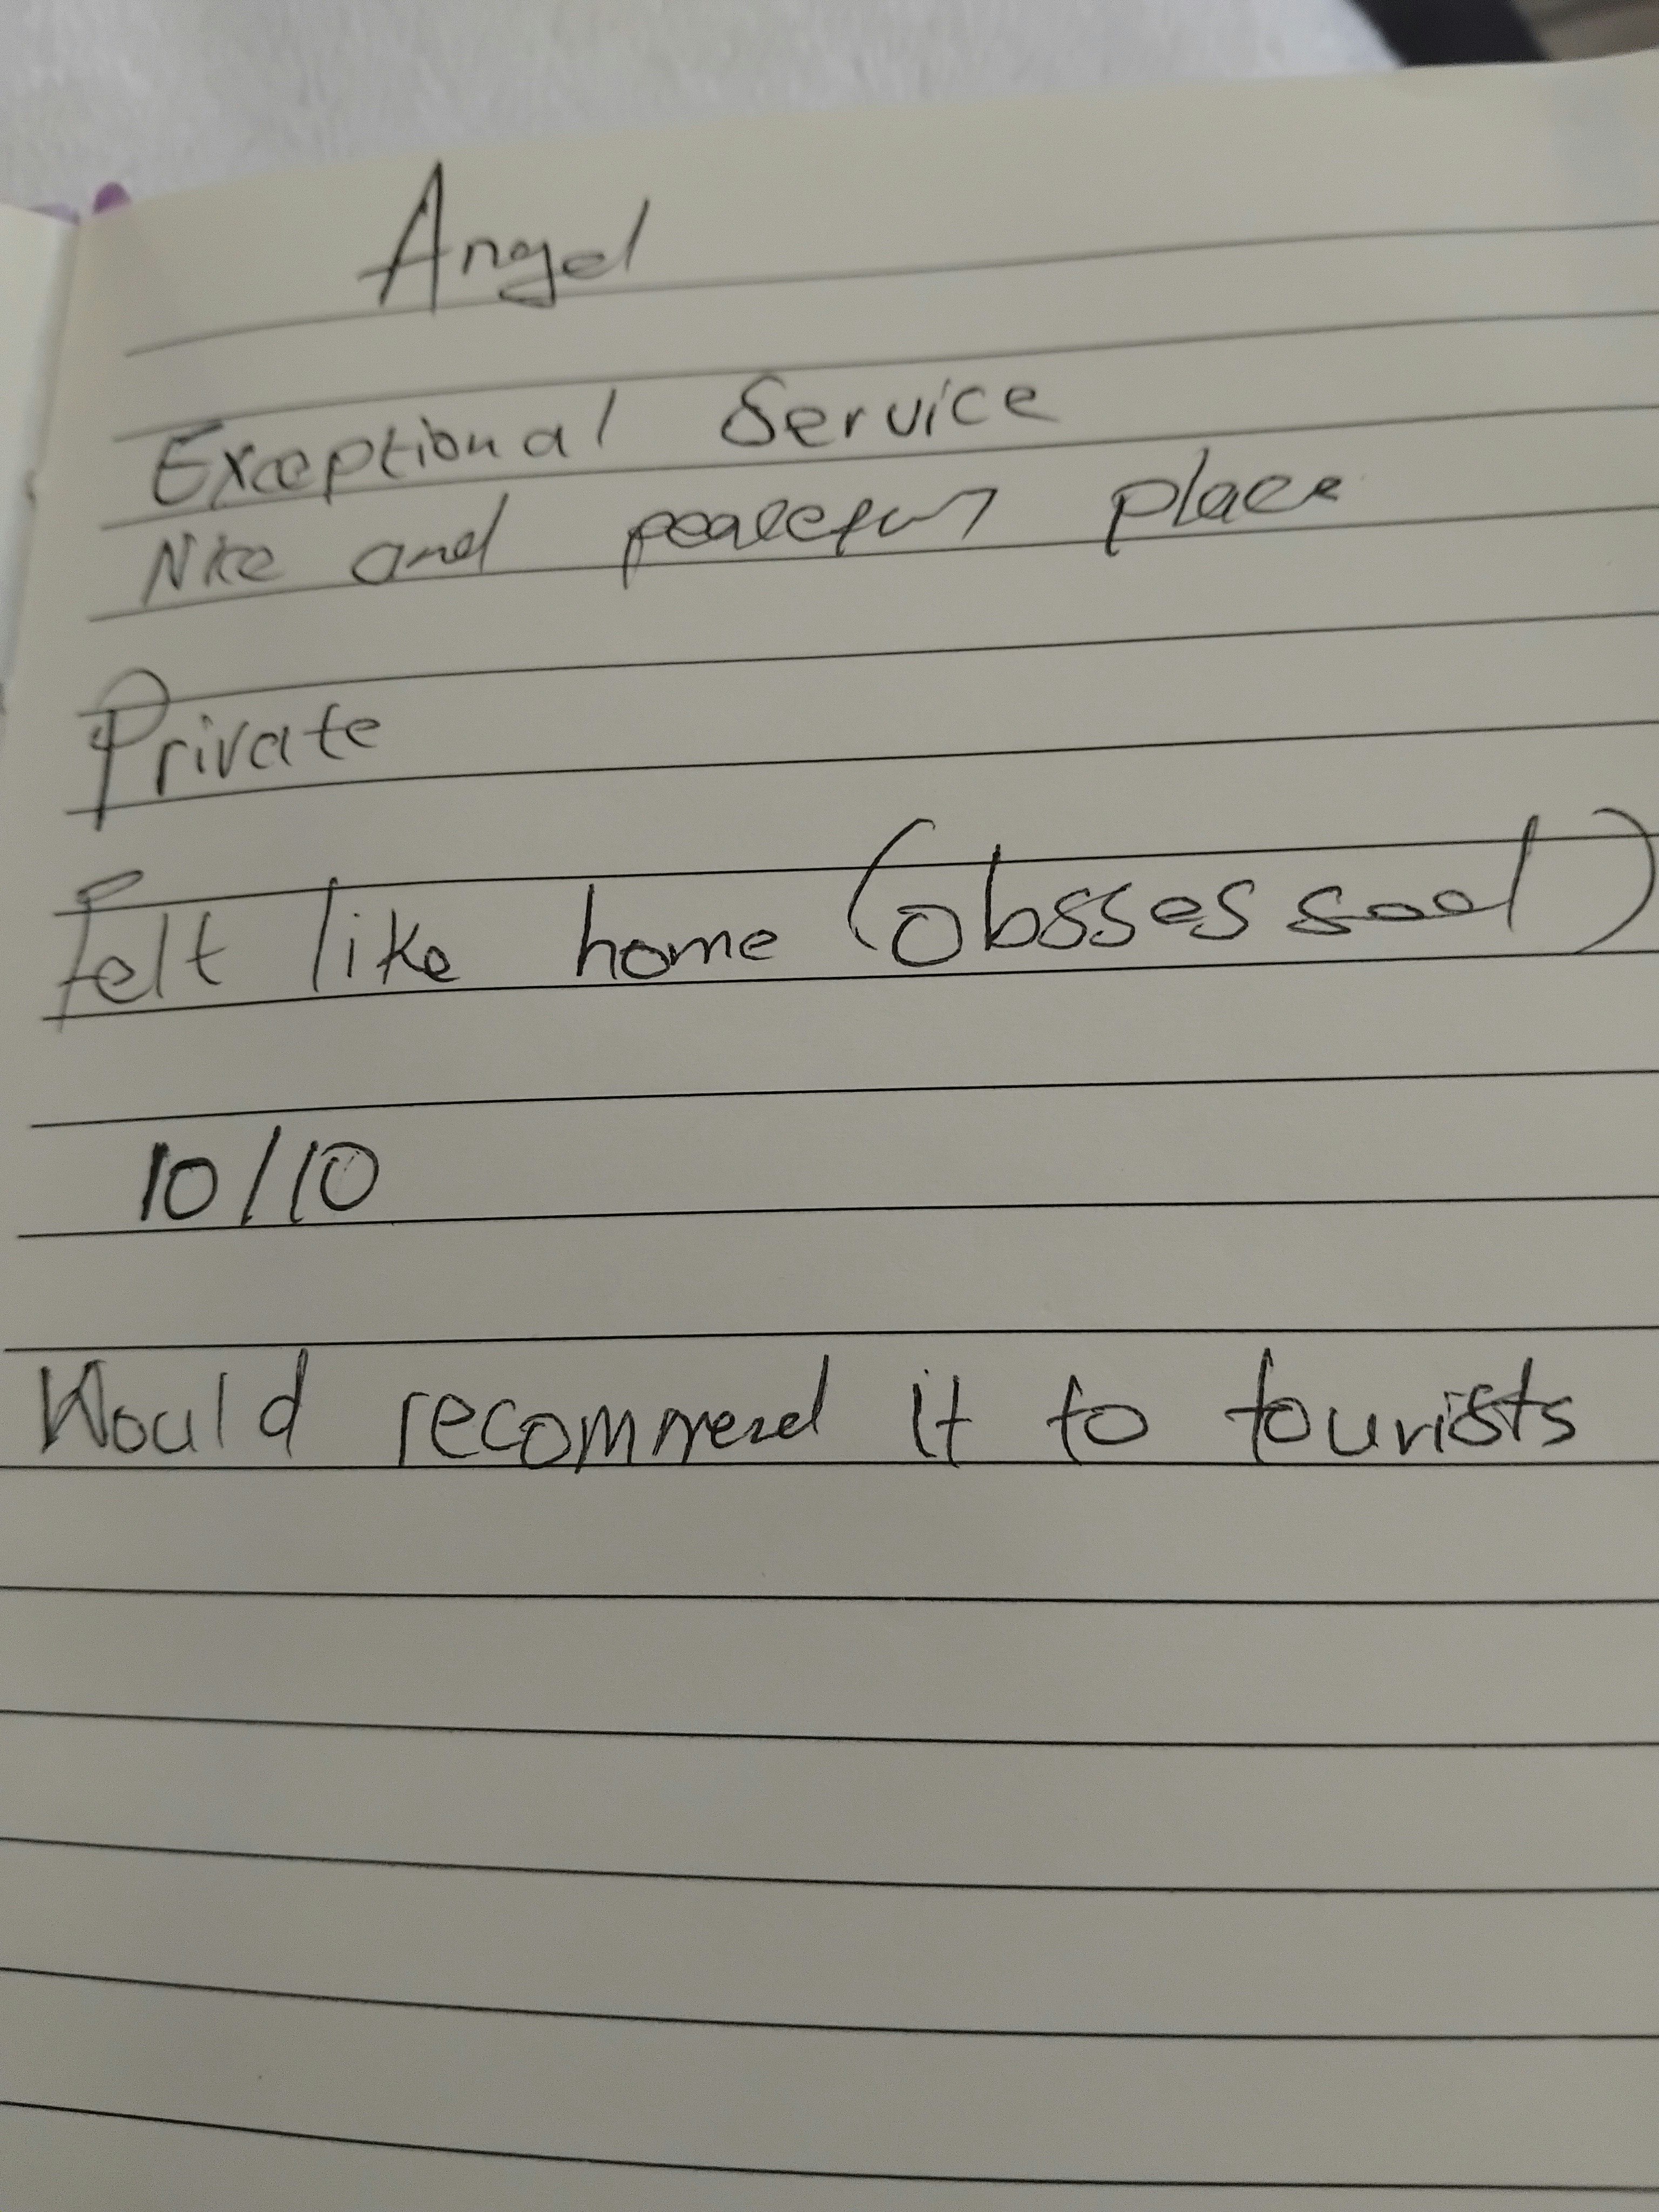 Angel
Exceptional Service
Nice and peaceful place
Private
Felt like home (obssessed)
10/10
Would recommend it to tourists